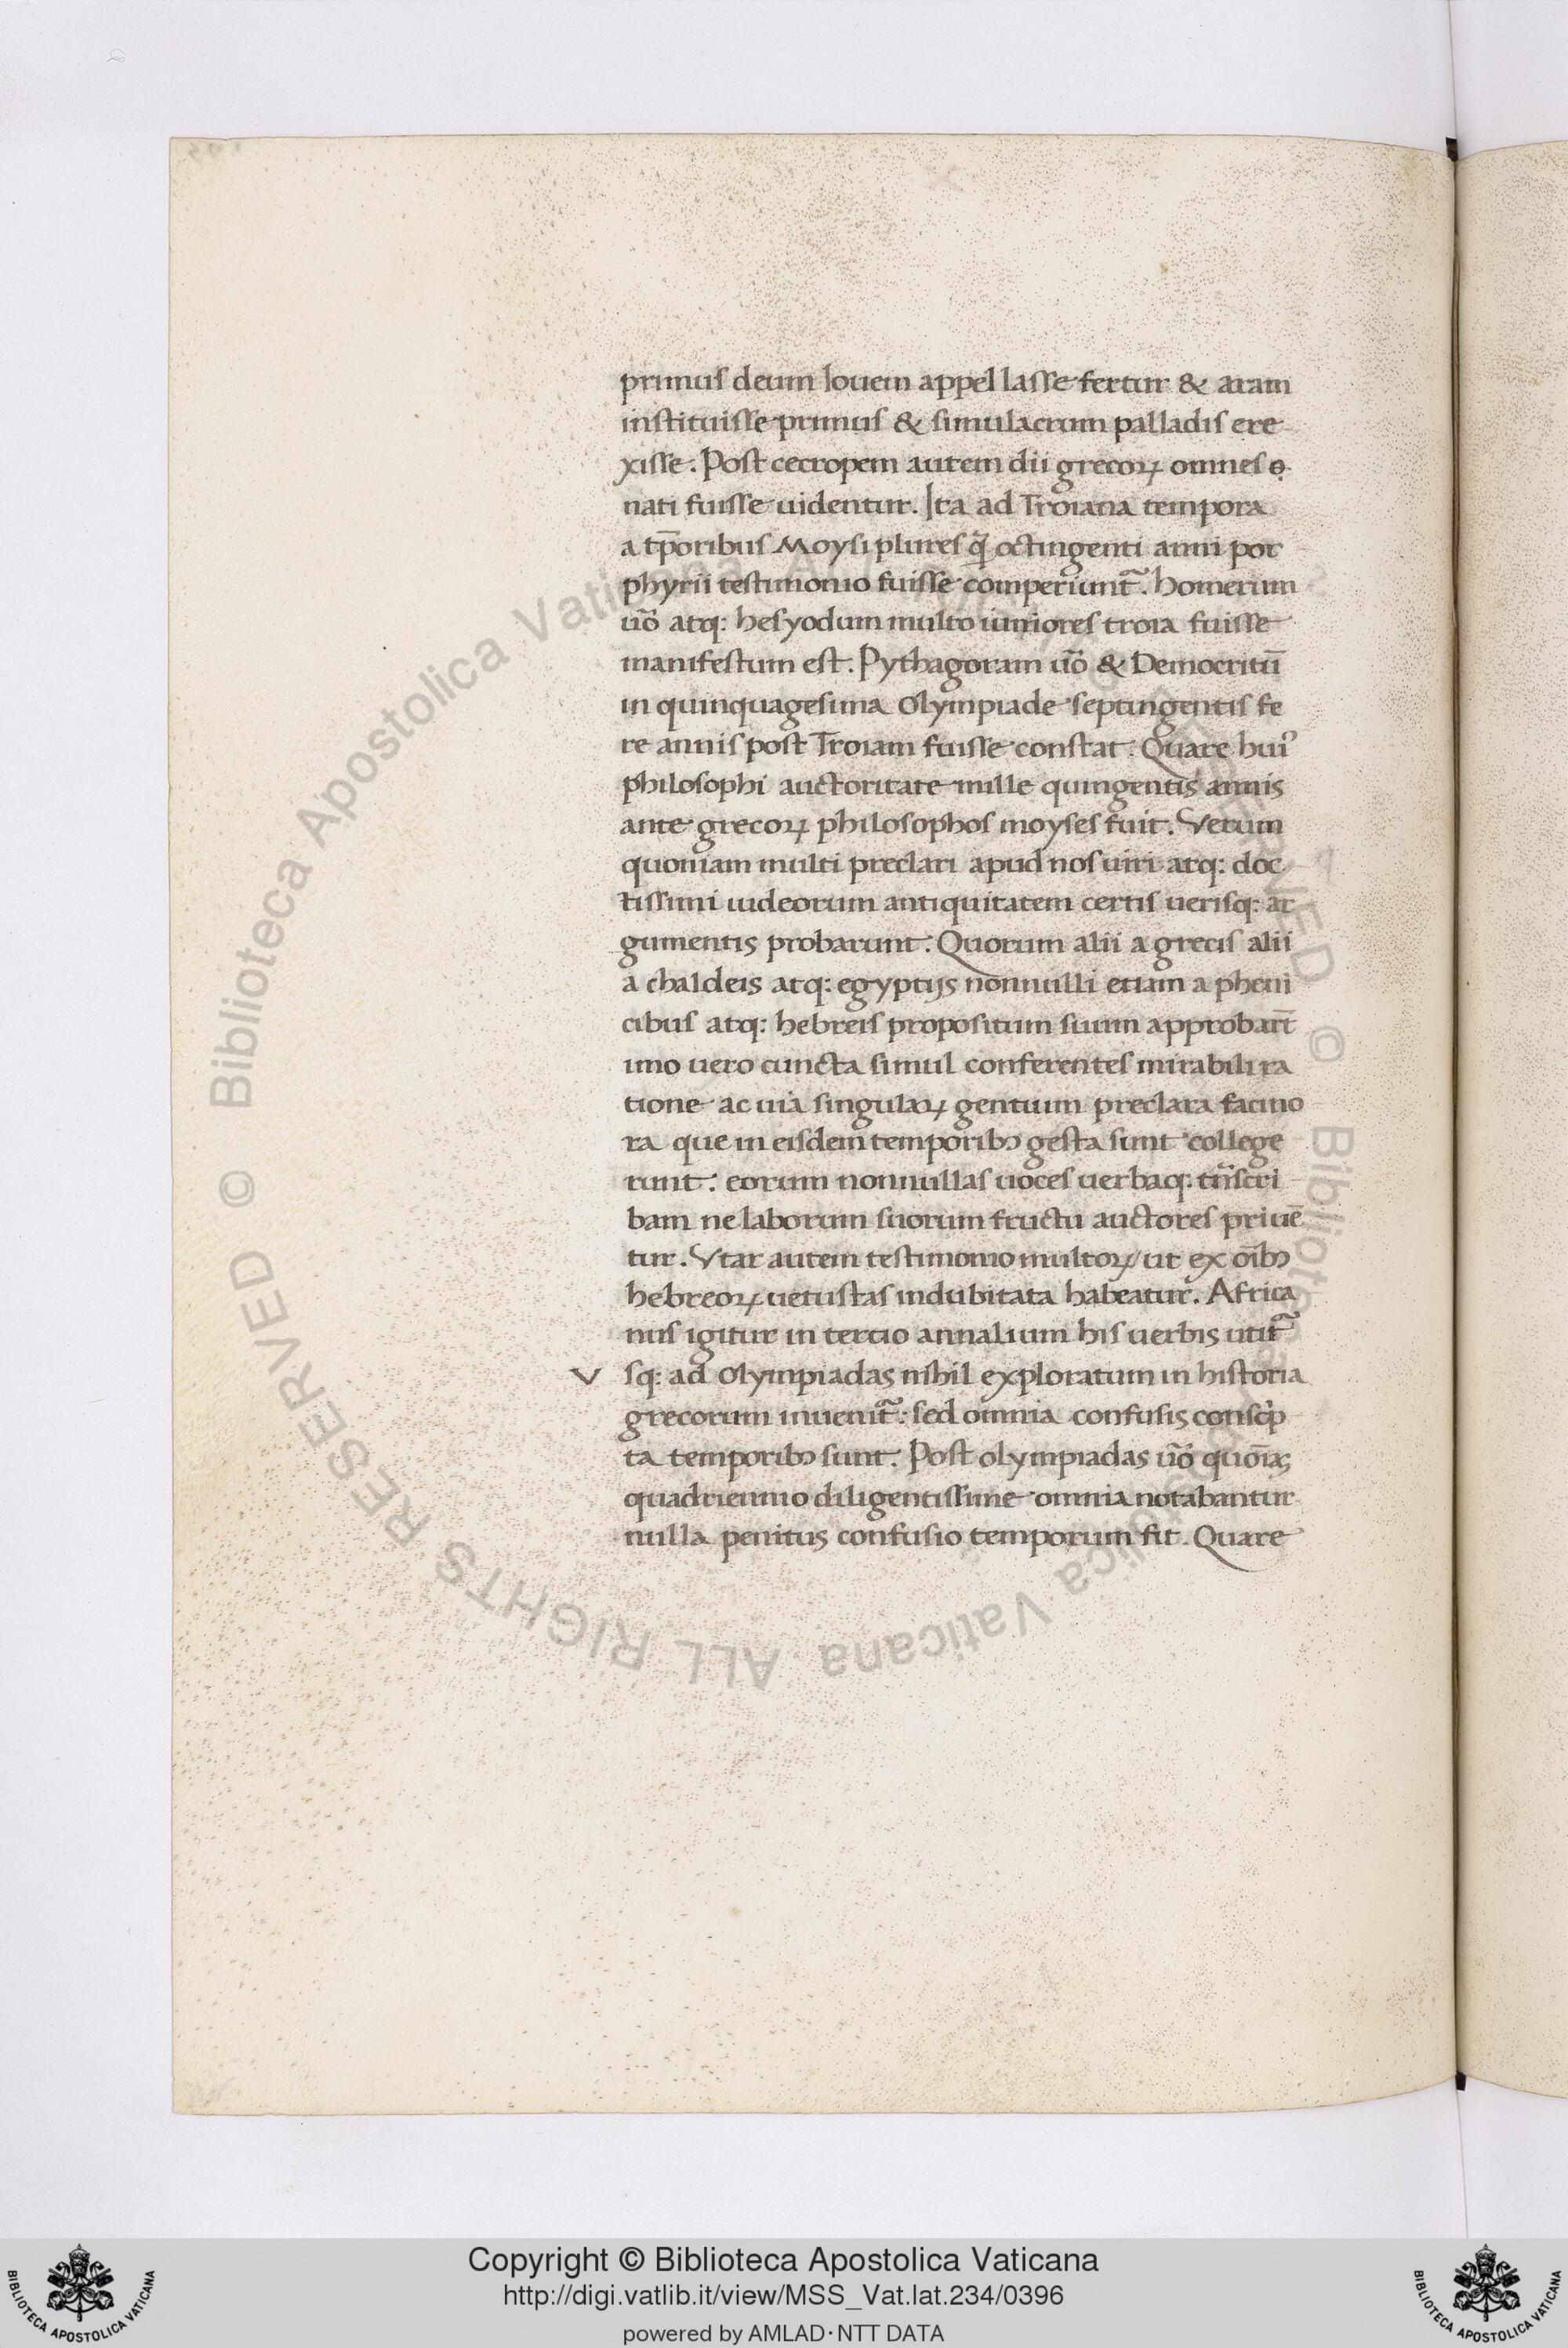 primus deum Iouem appellasse fertur & aram
instituisse primus & simulacrum palladis ere
xisse. Post cecropem autem dii grecoꝝ omnes
nati fuisse uidentur. Ita ad Troiana tempora
a tp̄oribus Moysi plures q̃ octingenti anni por
phyrii testimonio fuisse comperiunt᷑. homerum
uõ atq: hesyodum multo iuniores troia fuisse
manifestum est. Pythagoram uõ & Democritū
in quinquagesima Olympiade septingentis fe
re annis post Troiam fuisse constat. Quare huiꝰ
philosophi auctoritate mille quingentis annis
ante grecoꝝ philosophos moyses fuit. Verum
quoniam multi preclari apud nos uiri atq: doc
tissimi iudeorum antiquitatem certis uerisq: ar
gumentis probarunt. Quorum alii a grecis alii
a chaldeis atq: egyptijs nonnulli etiam a pheni
cibus atq: hebreis propositum suum approbar̄t
imo uero cuncta simul conferentes mirabili ra
tione ac uia singulaꝝ gentium preclara facino
ra que in eisdem temporibꝰ gesta sunt college
runt. eorum nonnullas uoces uerbaq: trãscri
bam ne laborum suorum fructu auctores priuē
tur. Vtar autem testimonio multoꝝ/ ut ex oībꝰ
hebreoꝝ uetustas indubitata habeatur. Africa
nus igitur in tercio annalium his uerbis utit᷑
V sq: ad Olympiadas nihil exploratum in historia
grecorum inuenit᷑: sed omnia confusis conscͥp
ta temporibꝰ sunt. Post olympiadas uõ quoīa;
quadriennio diligentissime omnia notabantur
nulla penitus confusio temporum fit. Quare
Copyright © Biblioteca Apostolica Vaticana
http://digi.vatlib.it/view/MSS_Vat.lat.234/0396
powered by AMLAD·NTT DATA
BIBLIOTECA APOSTOLICA VATICANA
BIBLIOTECA APOSTOLICA VATICANA
© Biblioteca Apostolica Vaticana ALL RIGHTS RESERVED
© Biblioteca Apostolica Vaticana ALL RIGHTS RESERVED